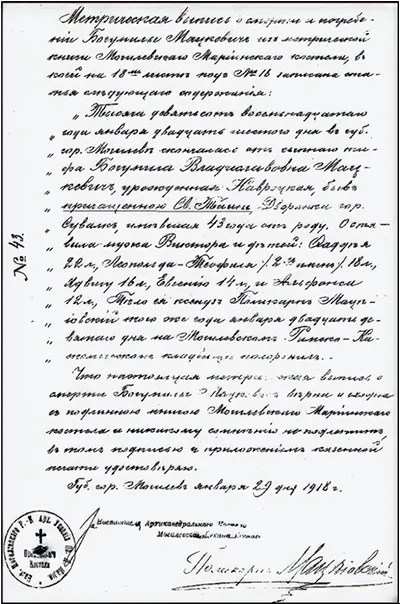 Метрическая выпись о смерти и погребе-
нiи Богумилы Мацкевич из метрической
книги Могилевскаго Марiинскаго костела, в
коей на 18м листе под № 16 записана ста-
тья следующаго содержанiя:
„ Тысяча девятьсот восемнадцатаго
„ года января двадцать шестого дня в губ.
„ гор. Могилеве скончалась от сыпного ти-
„ фа Богумила Владиславовна Мац-
„ кевич, урожденная Навроцкая, быв
„ прiащенною Св. Тайн, Дворянка гор.
„ Сувалк, имевшая 43 года от роду. Оста-
„ вила мужа Виктора и детей: Фаддея
22 л, Леопольда-Теофила /2 имен/ 18 л,
Ядвигу 16 л, Евгенiю 14 л и Альфонса
12 л, Тело ея ксендз Поликарп Мацi-
iовскiй того же года января двадцать де-
вятаго дня на Могилевском Римско-Ка-
толическом кладбище похоронил.
Что настоящая метрическая выпись о
смерти Богумилы Мацкевич верна и сходна
с подлинною книгою Могилевскаго Марiинскаго
костела и никакому сомненiю не подлежит
в том подписью и приложенiем казенной
печати удостоверяю.
Губ. гор. Могилев января 29 дня 1918 г.
№ 43.
Поликарп Мацiовскiй